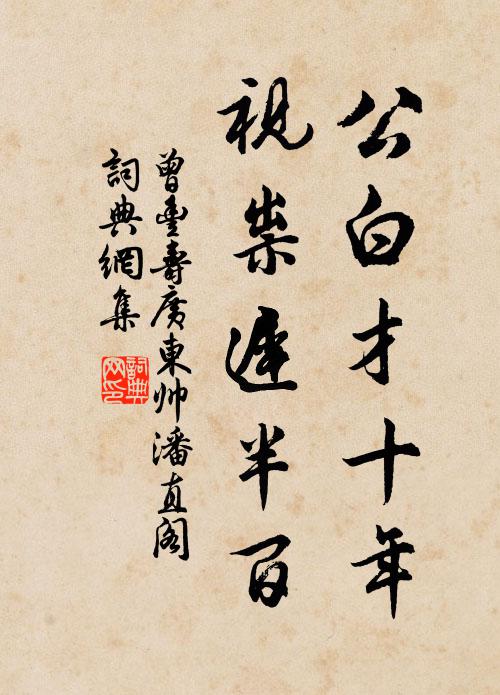 公白才十年
視祟遲半百
曾豐壽廣東帥潘直閣
詞典網集
詞典网印